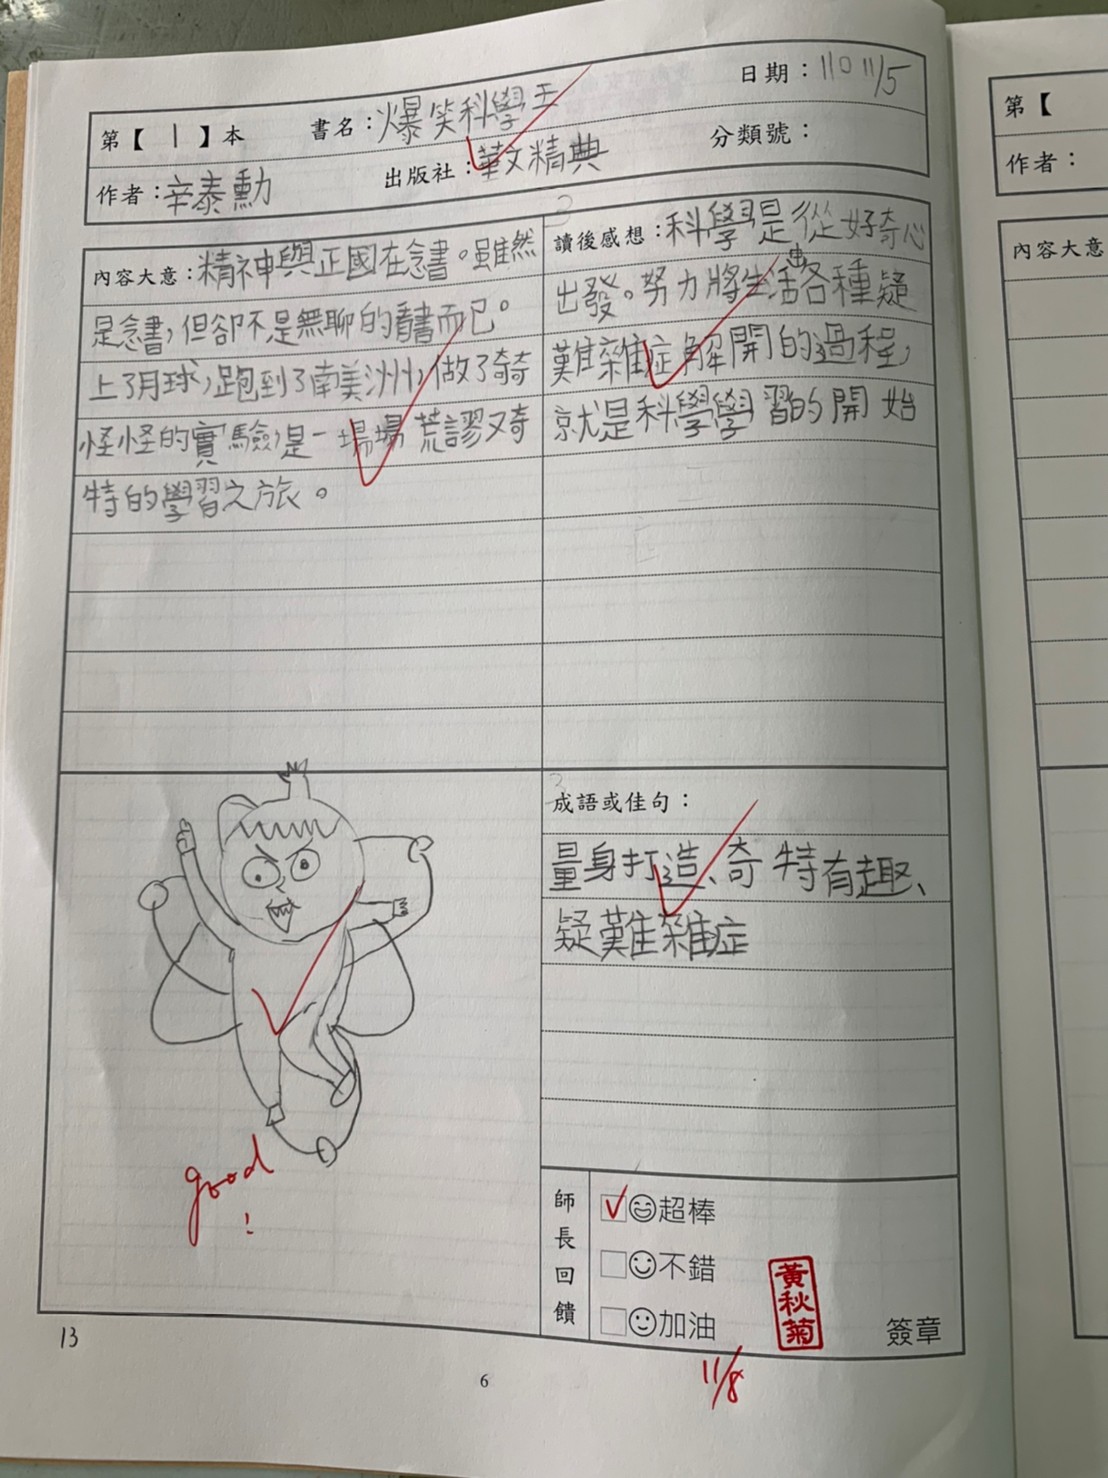 第【 1 】本 書名：爆笑科學王 日期：110 11/5
作者：辛泰勳 出版社：華文精典 分類號：
內容大意：精神與正國在念書。雖然
是念書，但卻不是無聊的書而已。
上了月球，跑到了南美洲，做了奇奇
怪怪的實驗，是一場場荒謬又奇
特的學習之旅。
讀後感想：科學是從好奇心
出發。努力將生活中各種疑
難雜症解開的過程，
就是科學學習的開始
成語或佳句：
量身打造、奇特有趣、
疑難雜症
good
!
師長回饋
超棒
不錯
加油
黃秋菊
簽章
11/8
13
6
第【
作者：
內容大意